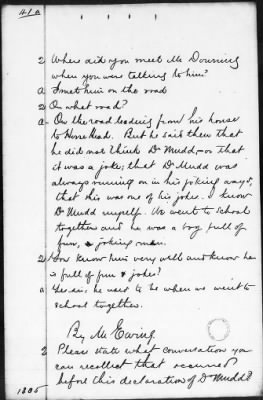 41a
Q Where did you meet Mr Downing
when you were talking to him?
a I met him on the road
Q On what road?
a On the road leading from his house
to Horse Head. But he said then that
he did not think Dr Mudd, - or that
it was a joke; that Dr Mudd was
always running on in his joking way &
that his was one of his jokes. I know
Dr Mudd myself. We went to school
together and he was a boy full of
fun, a joking man.
Q You know him very well and know he
is full of fun & jokes?
a Yes sir; he used to be when we went to
school together.
By Mr Ewing
Q Please state what conversation you
can recollect that occurred
before this declaration of Dr Mudd?
1805